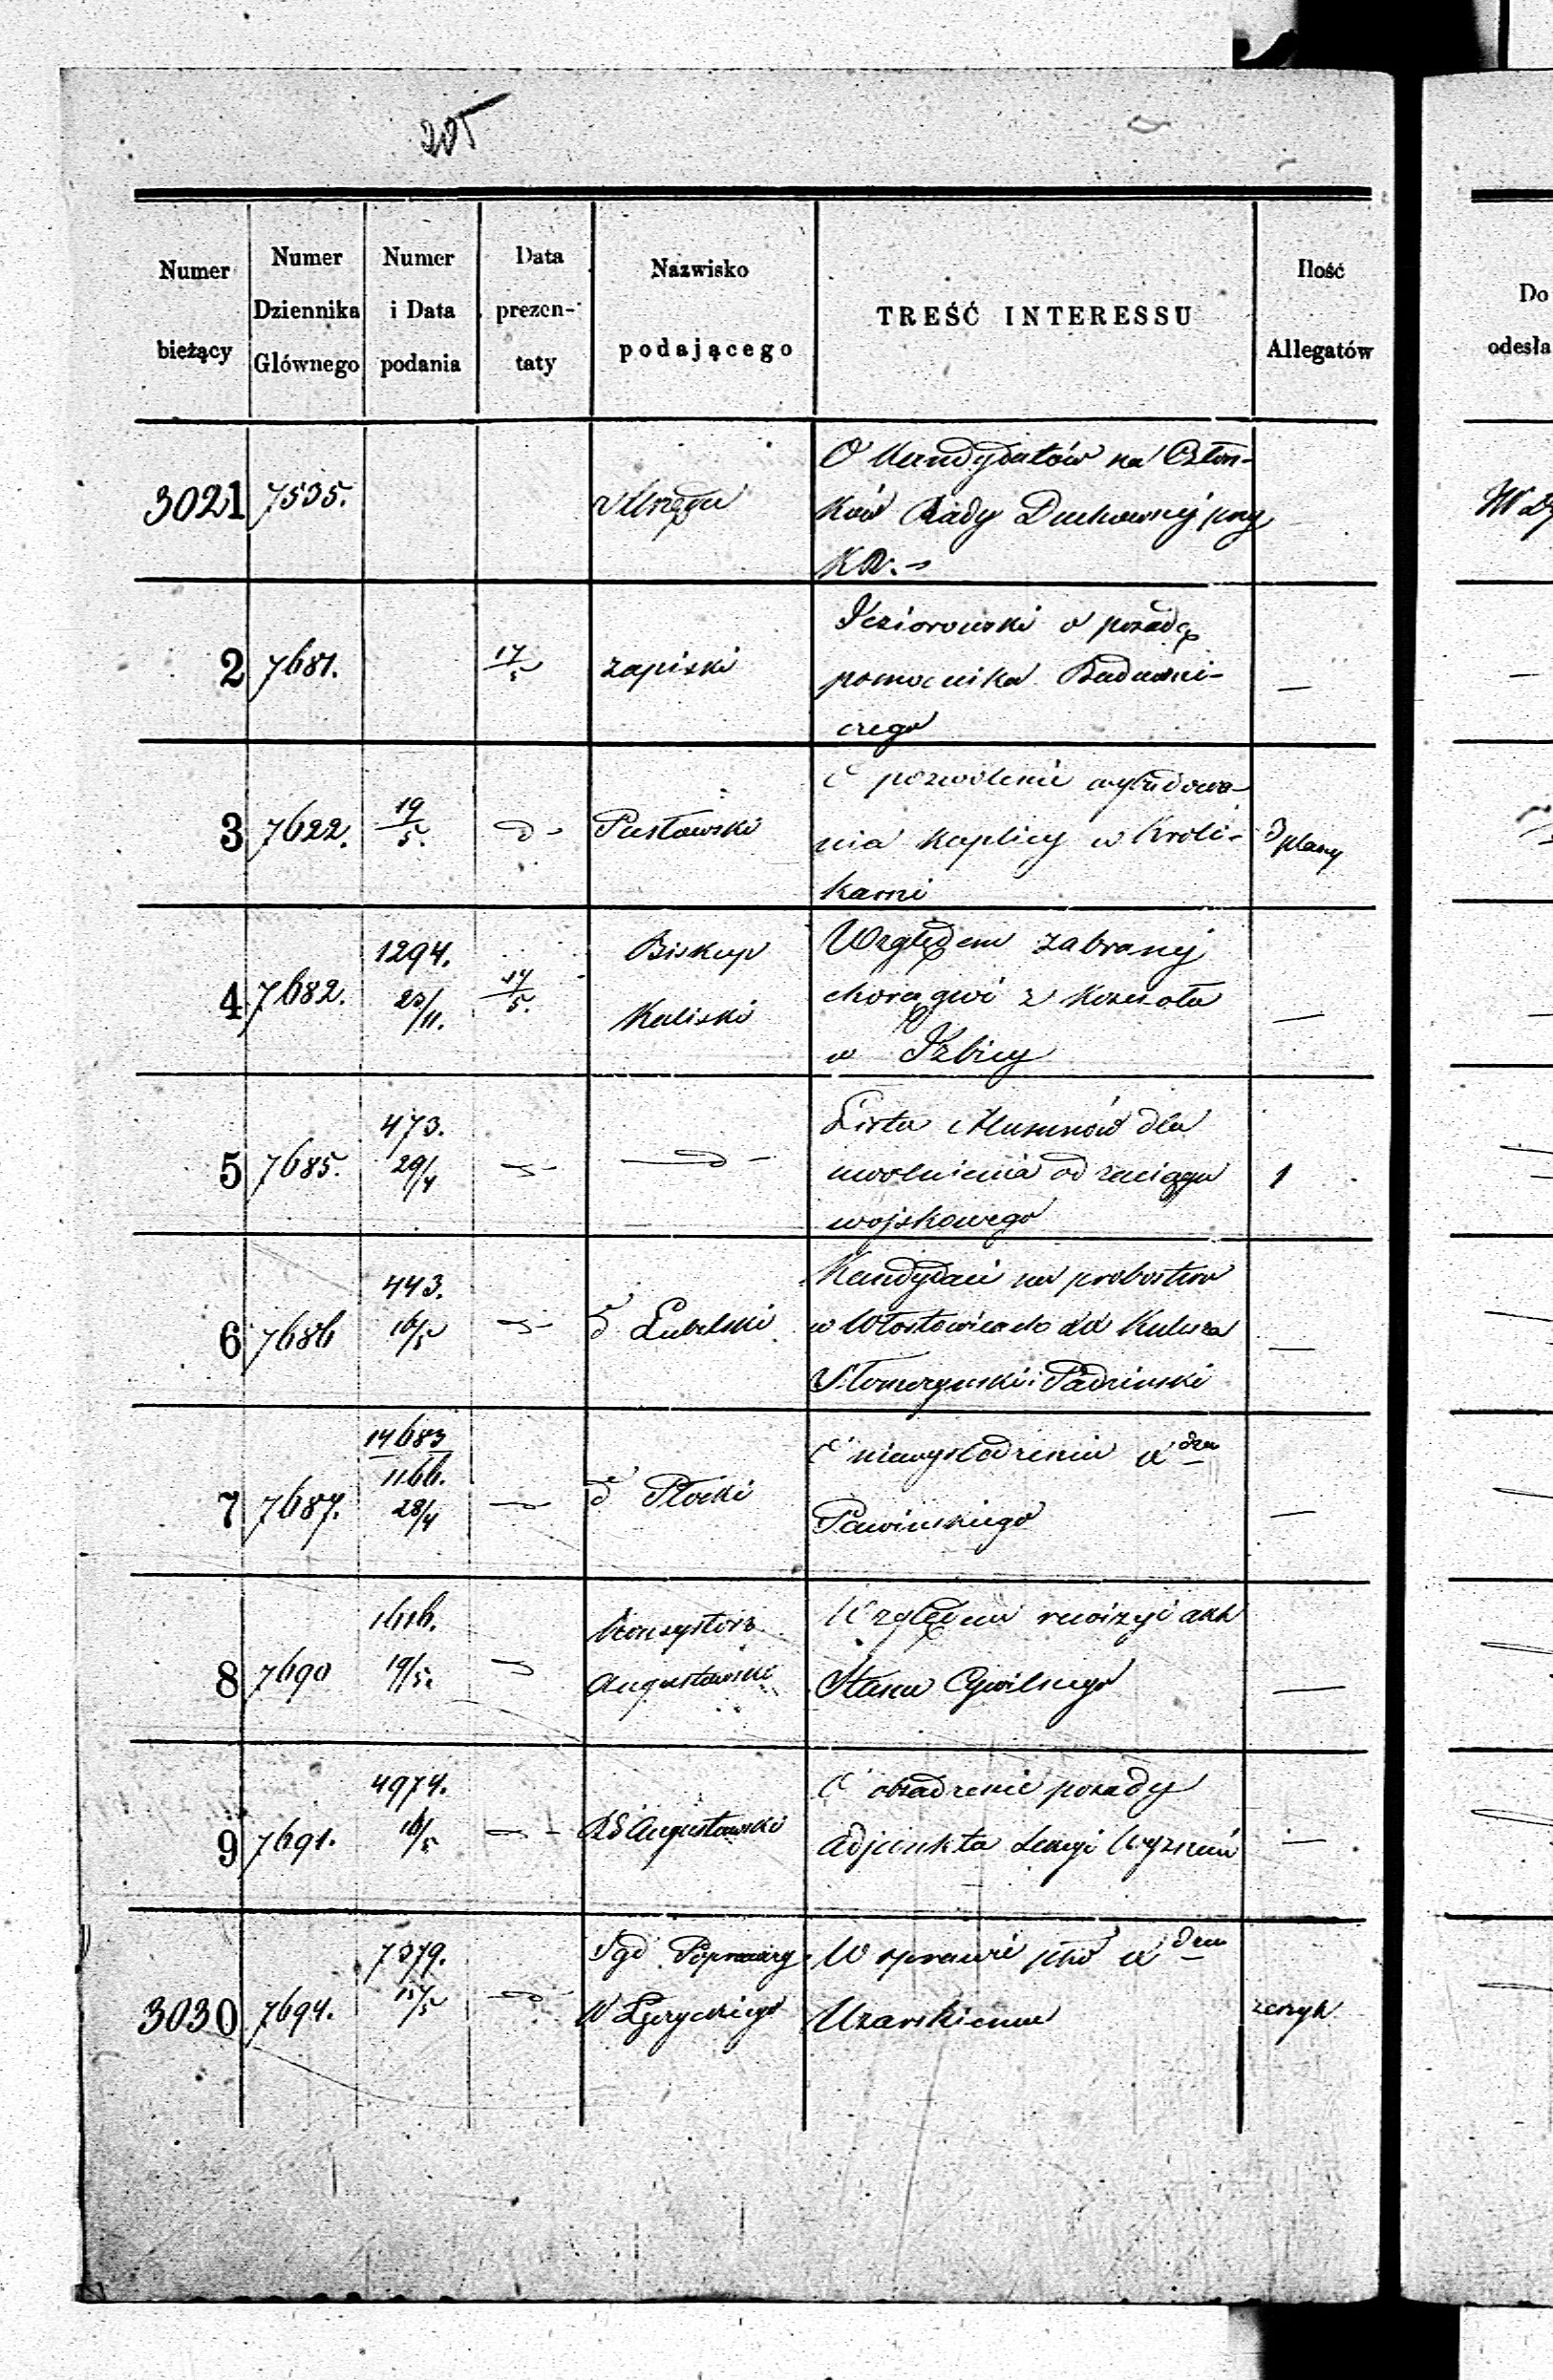 205
Numer bieżący
Numer Dziennika Głównego
Numer i Data podania
Data prezen-taty
Nazwisko podającego
TREŚĆ INTERESSU
Ilość Allegatów
Do
odesła
3021 7535. z Urzędu
O Kandydatów na Człon-
ków Rady Duchownéj przy
K.R.
2 7681. 17/5 zapiski
Jeziorowski o posadę
pomocnika Budowni-
czego —
czego
3 7622. 19/5. d Pusłowski
O pozwolenie wybudowa-
nia kaplicy w Króli-
karni
3 plany
4 7682. 1294. 17/5. Biskup
Kaliski
Względem zabranéj
chorągwi z kościoła
w Izbicy —
5 7685. 473. 29/4 d d
Lista Alumnów dla
uwolnienia od zaciągu 1
wojskowego
6 7686 443. 16/5 d d Lubelski
Kandydaci na probostwo
w Włostowicach XX Kulesza
Słomczyński i —
7 7687. 14683
1166.
28/4 d d Płocki
O niewysłedzeniu Xdza
Pawińskiego —
8 7690 1616. 19/5. d Konsystorz
Augustowski
Względem rewizyi akt
Stanu Cywilnego —
9 7691. 4974. 16/5 d RG Augustowski
O obsadzenie posady
Adjunkta Sekcyi Wyznań —
3030 7694. 7379. 15/5 d Sąd Poprawczy
W Łęczyckiego
W sprawie pko Xdzu
Uzarskiemu
zeszyt